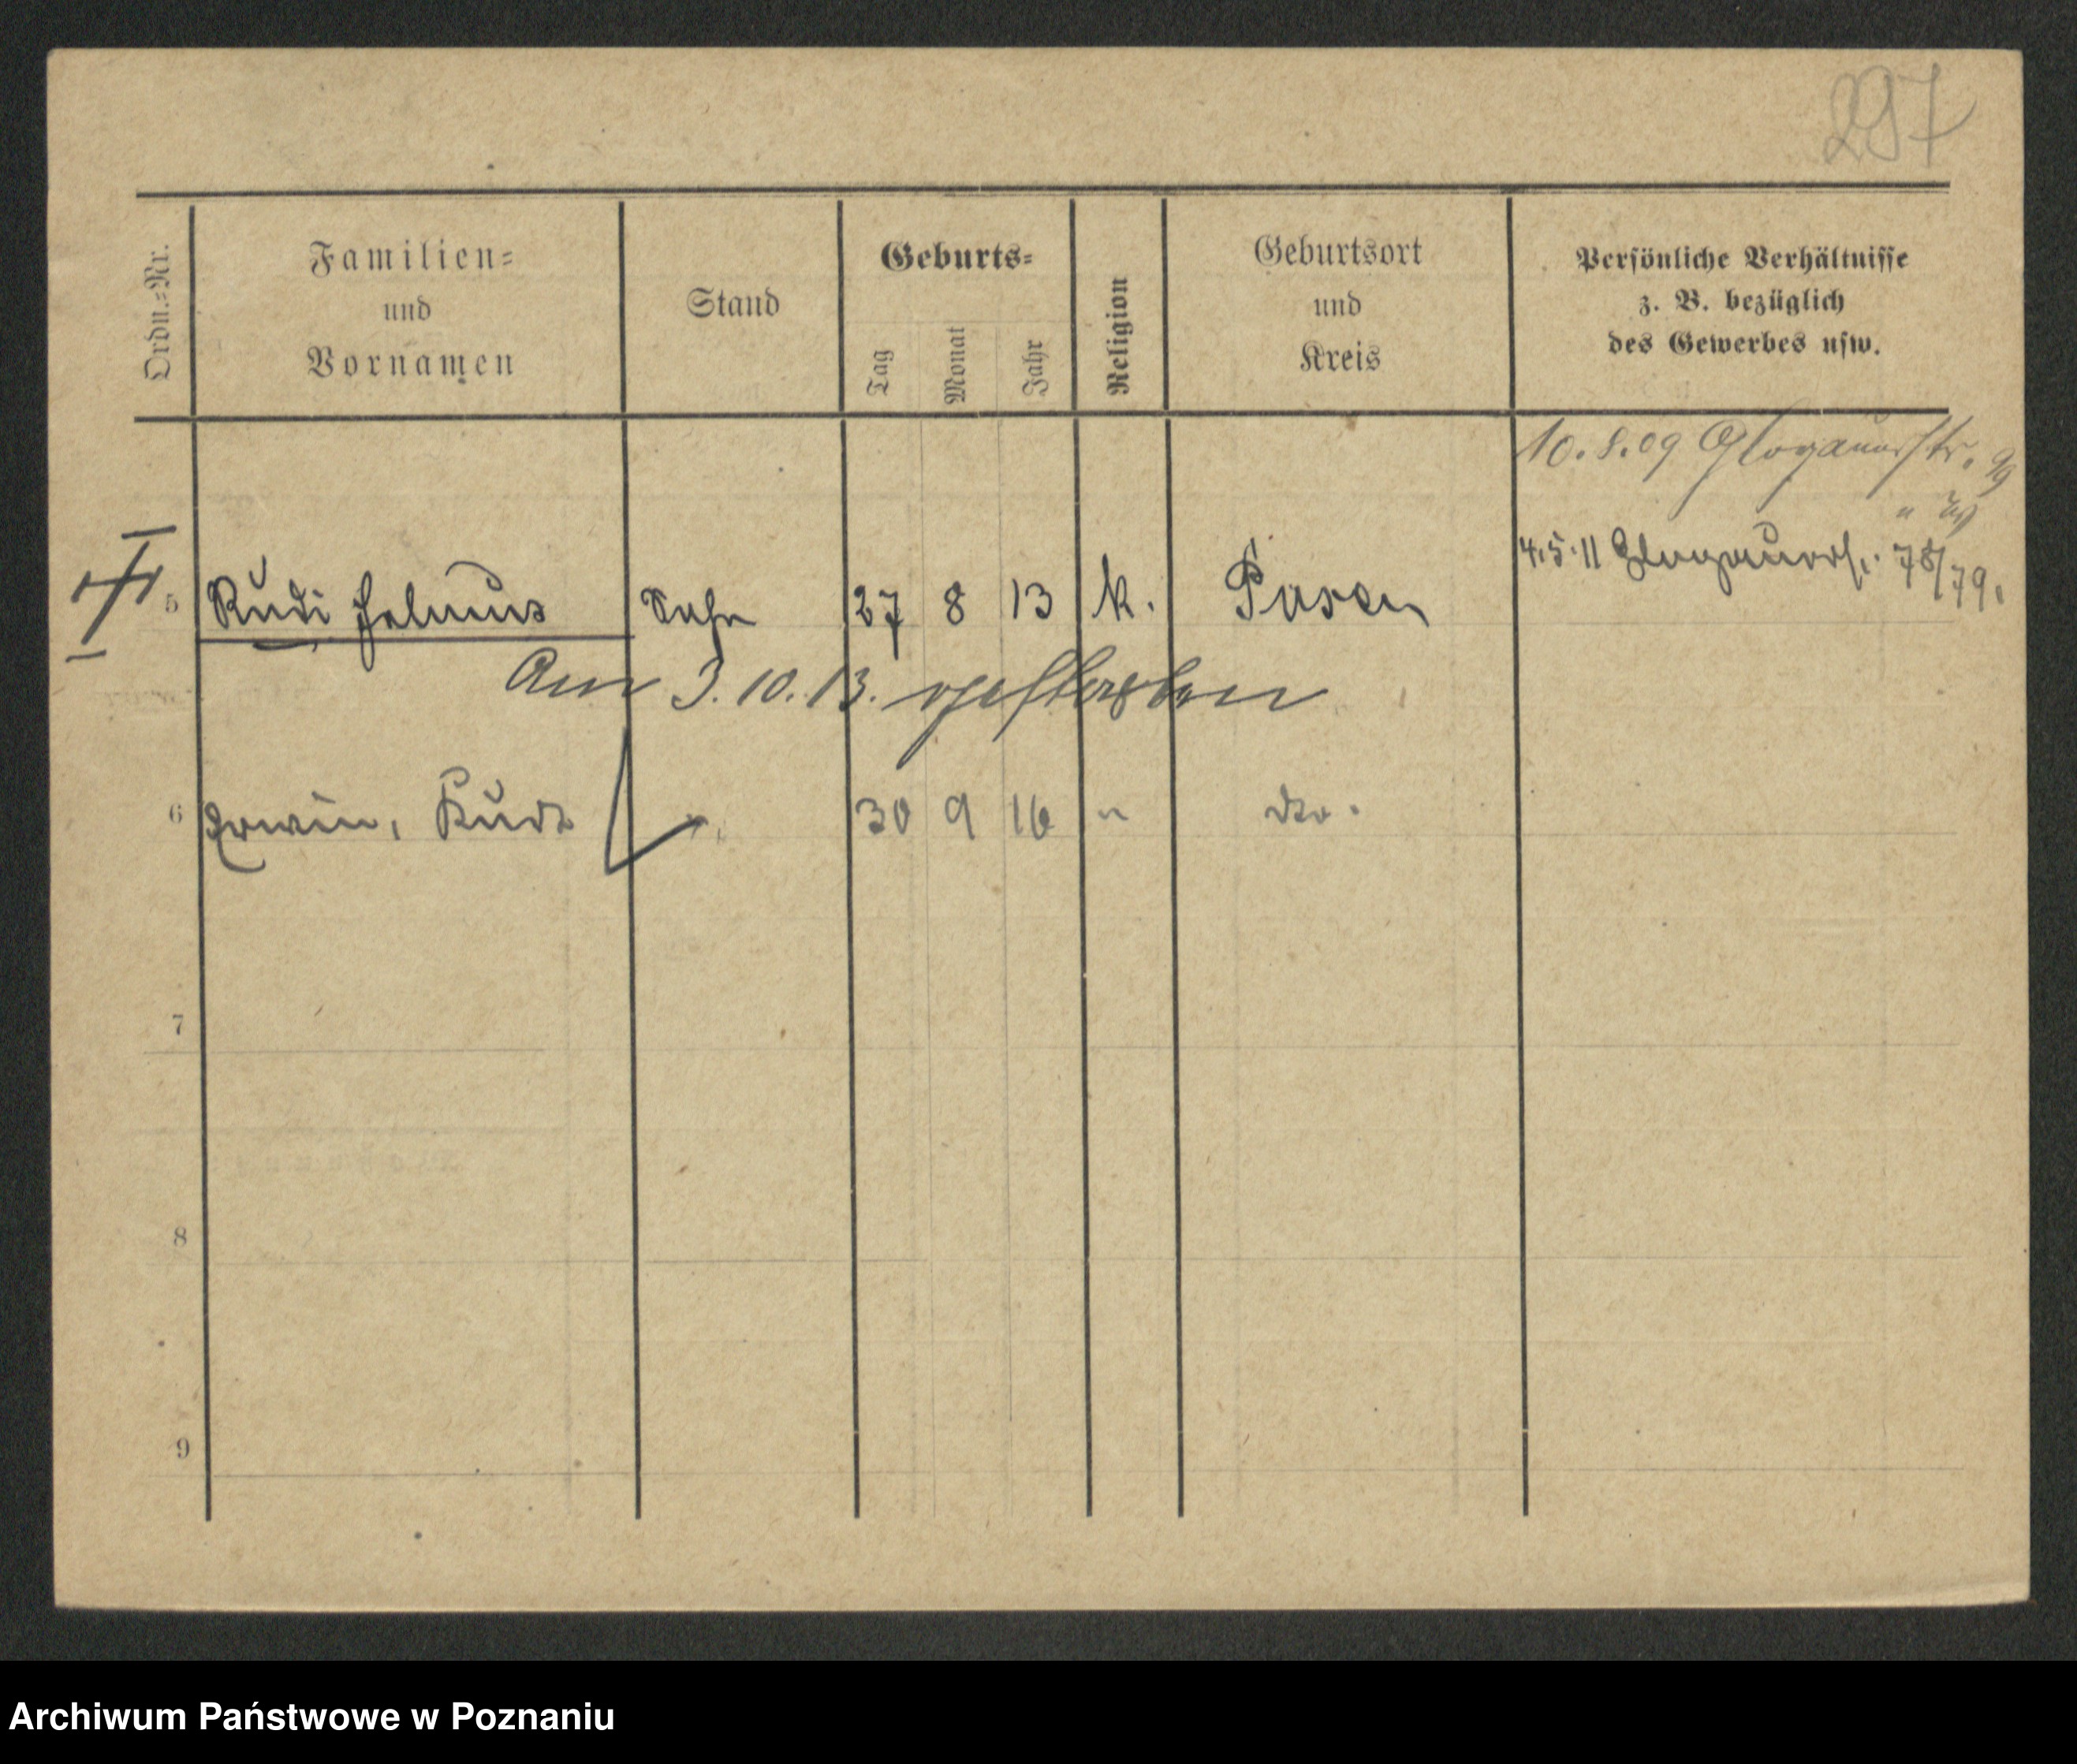 297
Ordn.-Nr.
Familien-
und
Vornamen
Stand
Geburts-
Tag
Monat
Jahr
Religion
Geburtsort
und
Kreis
Persönliche Verhältnisse
z. B. bezüglich
des Gewerbes usw.
10.8.09 Glogauerstr.
4.5.11 Glogauerstr. 78/79.
5 Rudi Helmut Sohn 27 8 13 k. Posen
Am 3.10.13. gestorben
6 Erwin, Kurt " 30 9 16 " dto.
7
8
9
Archiwum Państwowe w Poznaniu